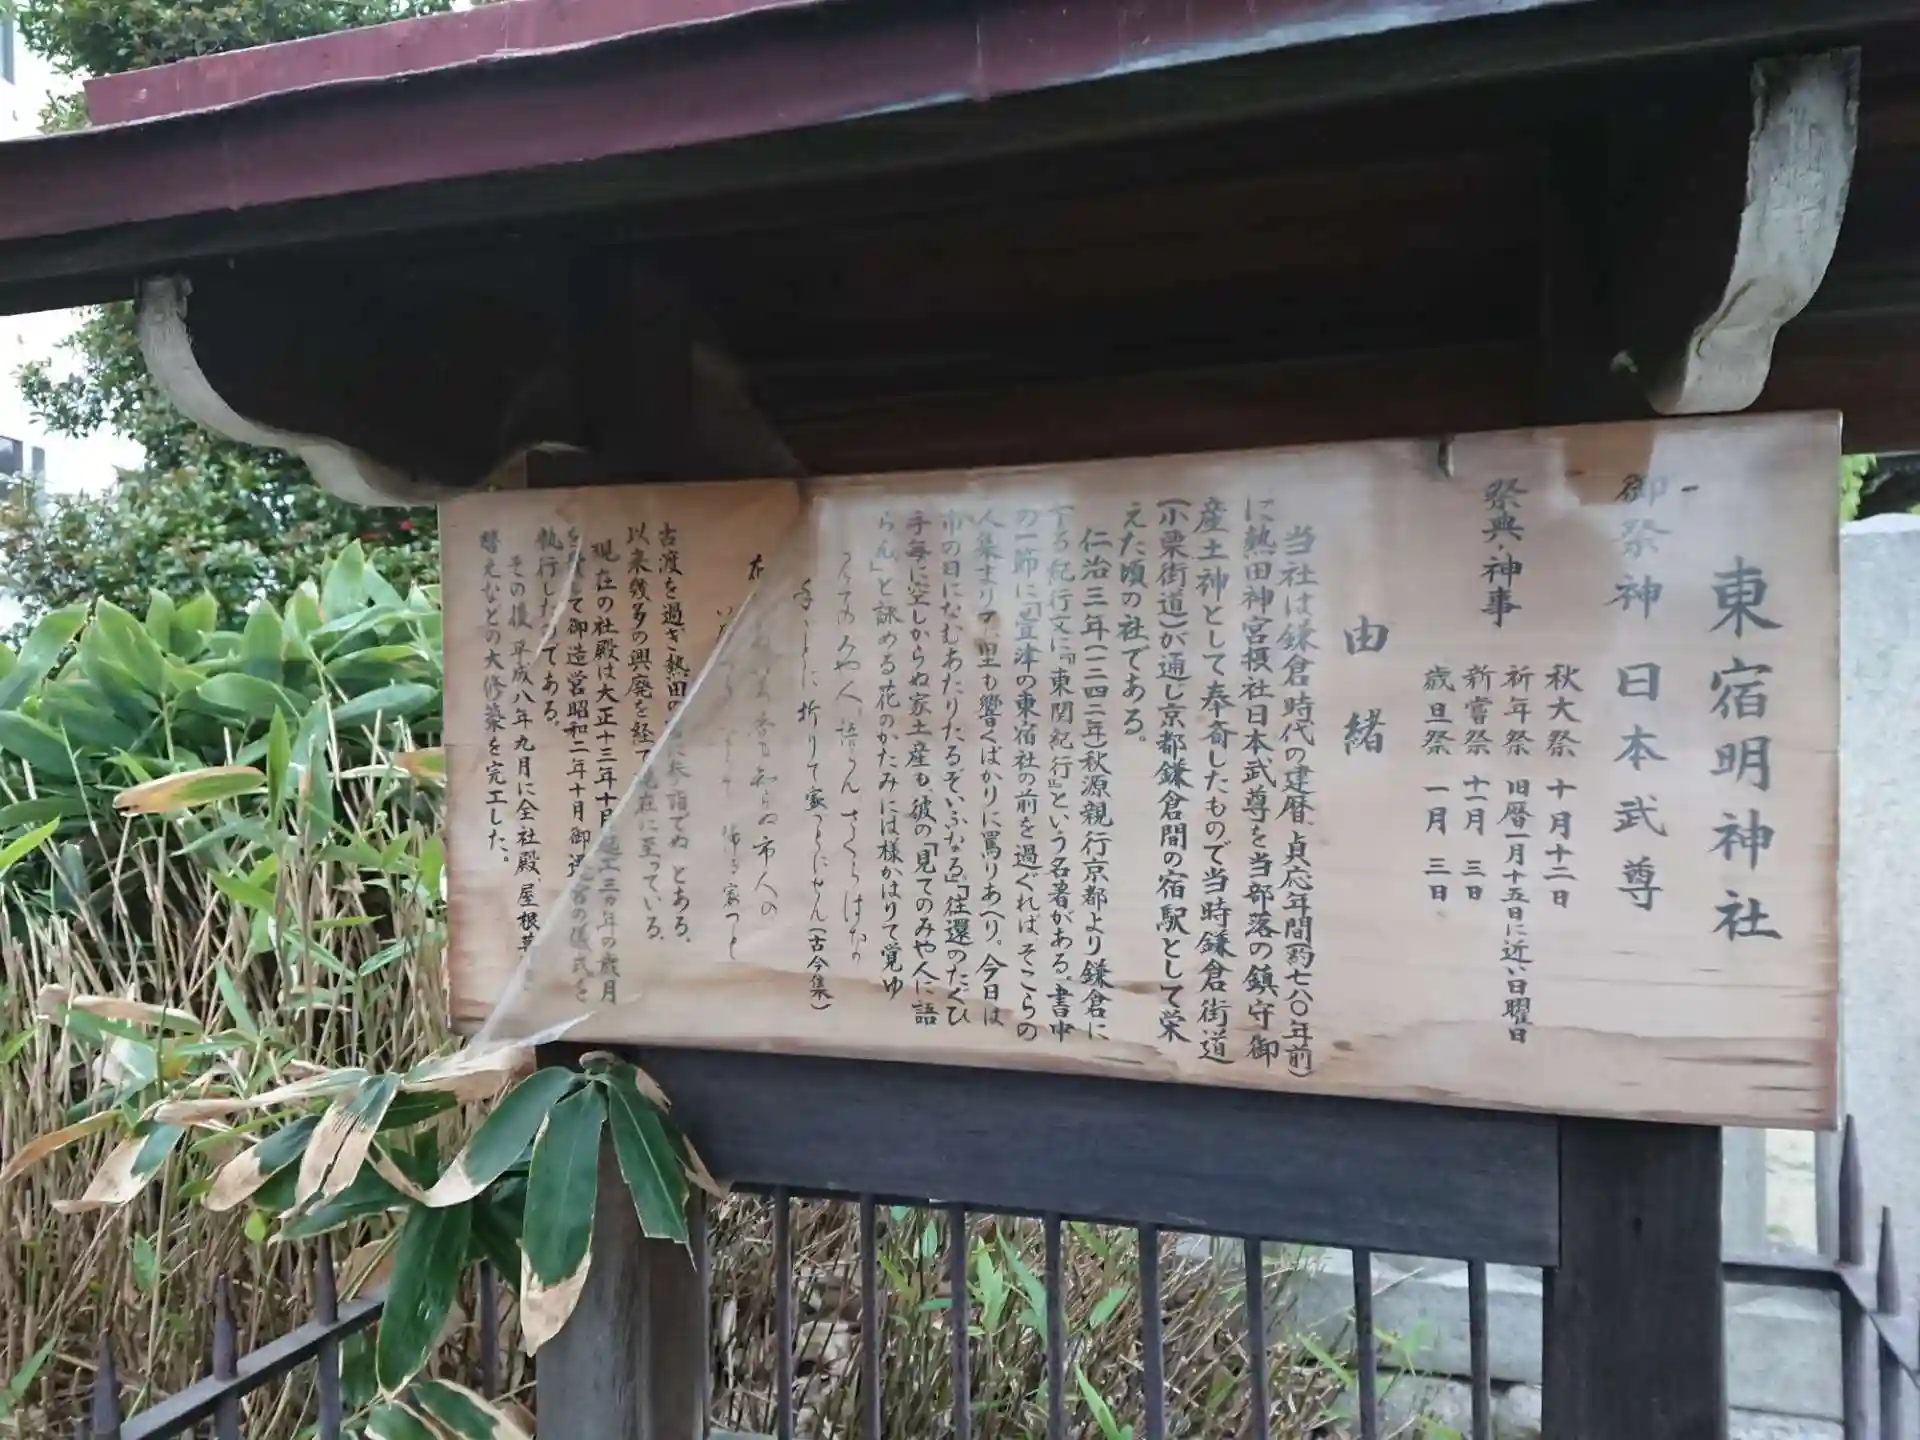 東宿明神社
御祭神 日本武尊
祭典・神事
秋大祭 十月十二日
祈年祭 旧暦一月十五日に近い日曜日
新嘗祭 十一月三日
歳旦祭 一月三日
由緒
当社は鎌倉時代の建暦、貞応年間(約七八〇年前)
に熱田神宮摂社日本武尊を当部落の鎮守御
産土神として奉斎したもので当時鎌倉街道
(小栗街道)が通し京都鎌倉間の宿駅として栄
えた頃の社である。
仁治三年(一二四二年)秋源親行京都より鎌倉に
下る紀行文に『東関紀行』という名著がある。書中
の一節に「萱津の東宿社の前を過ぐればそこらの
人集まりの里も響くばかりに罵りあへり。今日は
市の日になむあたりたるぞいふなる」「往還のたぐひ
手毎に空しからぬ家土産も、彼の「見てのみや人に語
らん」と詠める花のかたみには様かはりて覚ゆ
見てのみや人に語らん さくらはな
手ごとに 折りて家つとにせん(古今集)
市人の
帰る家つと
古渡を過ぎ熱田の 詣でぬ とある。
以来幾多の興廃を経て現在に至っている。
現在の社殿は大正十三年十月 起工三ヶ年の歳月
を して御造営昭和二年十月御遷宮の儀式を
執行したのである。
その後、平成八年九月に全社殿、屋根葺
替えなどの大修築を完工した。